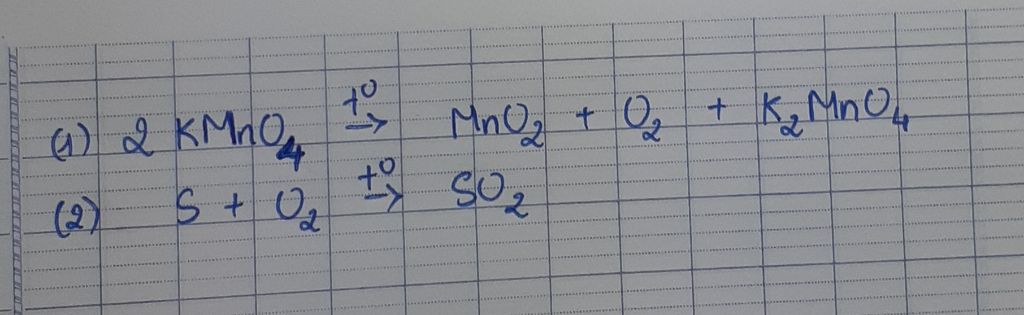 (1) 2 KMnO₄ →^{t⁰} MnO₂ + O₂ + K₂MnO₄
(2) S + O₂ →^{t⁰} SO₂